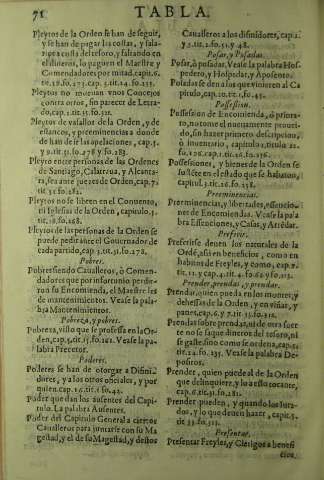 TABLA.
Pleytos de la Orden se han de seguir,
y se han de pagar las costas, y sala-
rios a costa del tesoro, y faltando en
el dineros, lo paguen el Maestre y
Comendadores por mitad. capit. 6.
Pleytos no mueuan vnos Concejos
contra otros, sin parecer de Letra-
Pleytos de vassallos de la Orden, y de
estancos, y preeminencias a donde
de han de ser las apelaciones, cap. 5.
Pleyto entre personas de las Ordenes
de Santiago, Calatraua, y Alcanta-
ra, sea ante juezes de Orden, cap. 7.
Pleytos no se libren en el Conuento,
ni Iglesias de la Orden, capitulo. 5.
Pleytos de las personas de la Orden se
puede pedir ante el Gouernador de
cada partido, cap. 5. tit. 31. fo. 278.
Pobres.
Pobres siendo Caualleros, ò Comen-
dadores que por infortunio perdie-
ron su Encomienda, el Maestre les
de mantenimientos. Vease la pala-
bra Mantenimientos.
Pobreza, y pobres.
Pobreza, visto que se professa en la Or-
den, cap. 4. tit. 15. fo. 161. Vease la pa-
labra Precetor.
Poderes.
Poderes se han de otorgar a Disini-
dores, y a los otros oficiales, y por
quien. cap. 6. tit. 1. fo. 42.
Poder que dan los ausentes del Capi-
tulo. La palabra Ausentes.
Poder del Capitulo General a ciertos
Caualleros para juntarse con su Ma
gestad, y el de su Magestad, y destos
Caualleros a los disinidores, cap. 2.
Posar, y Posadas.
Posar, ò posadas. Vease la palabra Hos-
pedero, y Hospedar, y Aposento.
Posadas se den a los que vinieren al Ca
Possession.
Possession de Encomienda, ò priora-
to, no tome el nueuamente proueì-
do, sin hazer primero descripcion,
ò inuentario, capitulo 1. titulo 22.
Possessiones, y bienes de la Orden se
sustēte en el estado que se hallaron,
Preeminencias.
Preeminencias, y libertades, essencio-
nes de Encomiendas. Vease la pala
bra Essenciones, y Casas, y Arrēdar.
Preferir.
Preferirse deuen los naturales de la
Ordē, assi en beneficios, como en
habitos de Freyles, y como, cap. 7.
Prender, prendas, y prendar.
Prendar, quien pueda en los montes, y
dehessas de la Orden, y en viñas, y
panes, cap. 6. y 7. tit. 35. fo. 310.
Prendas sobre prendar, ni de otra suer
te no se saque dineros del tesoro, ni
se gaste sino como se ordena, cap. 15.
tit. 24. fo. 235. Vease la palabra De-
positos.
Prender, quien puede al de la Orden
que delinquiere, y lo a esto tocante,
cap. 6. tit. 31. fo. 281.
Prender pueden, y quando los Iura-
dos, y lo que deuen hazer, capit. 5.
Presentar.
Presentar Freyles, y Clerigos a benefi
cios.